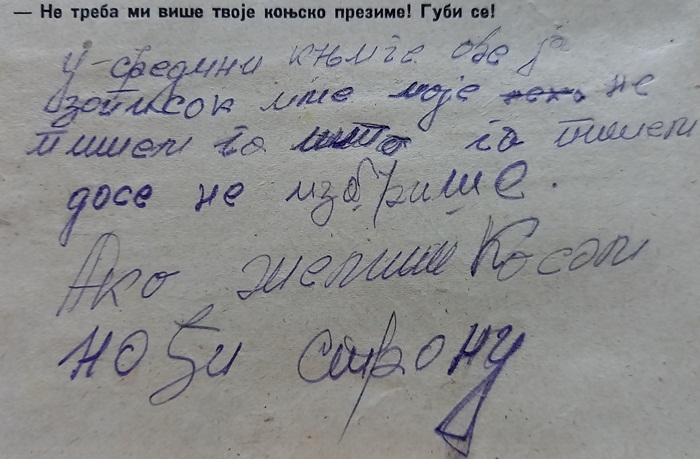 — Не треба ми више твоје коњско презиме! Губи се!
У средини књиге ове ја
зописок име моје не
пишем га што га пишем
досе не избрише.
Ако желиш Ко сам
нођи страну